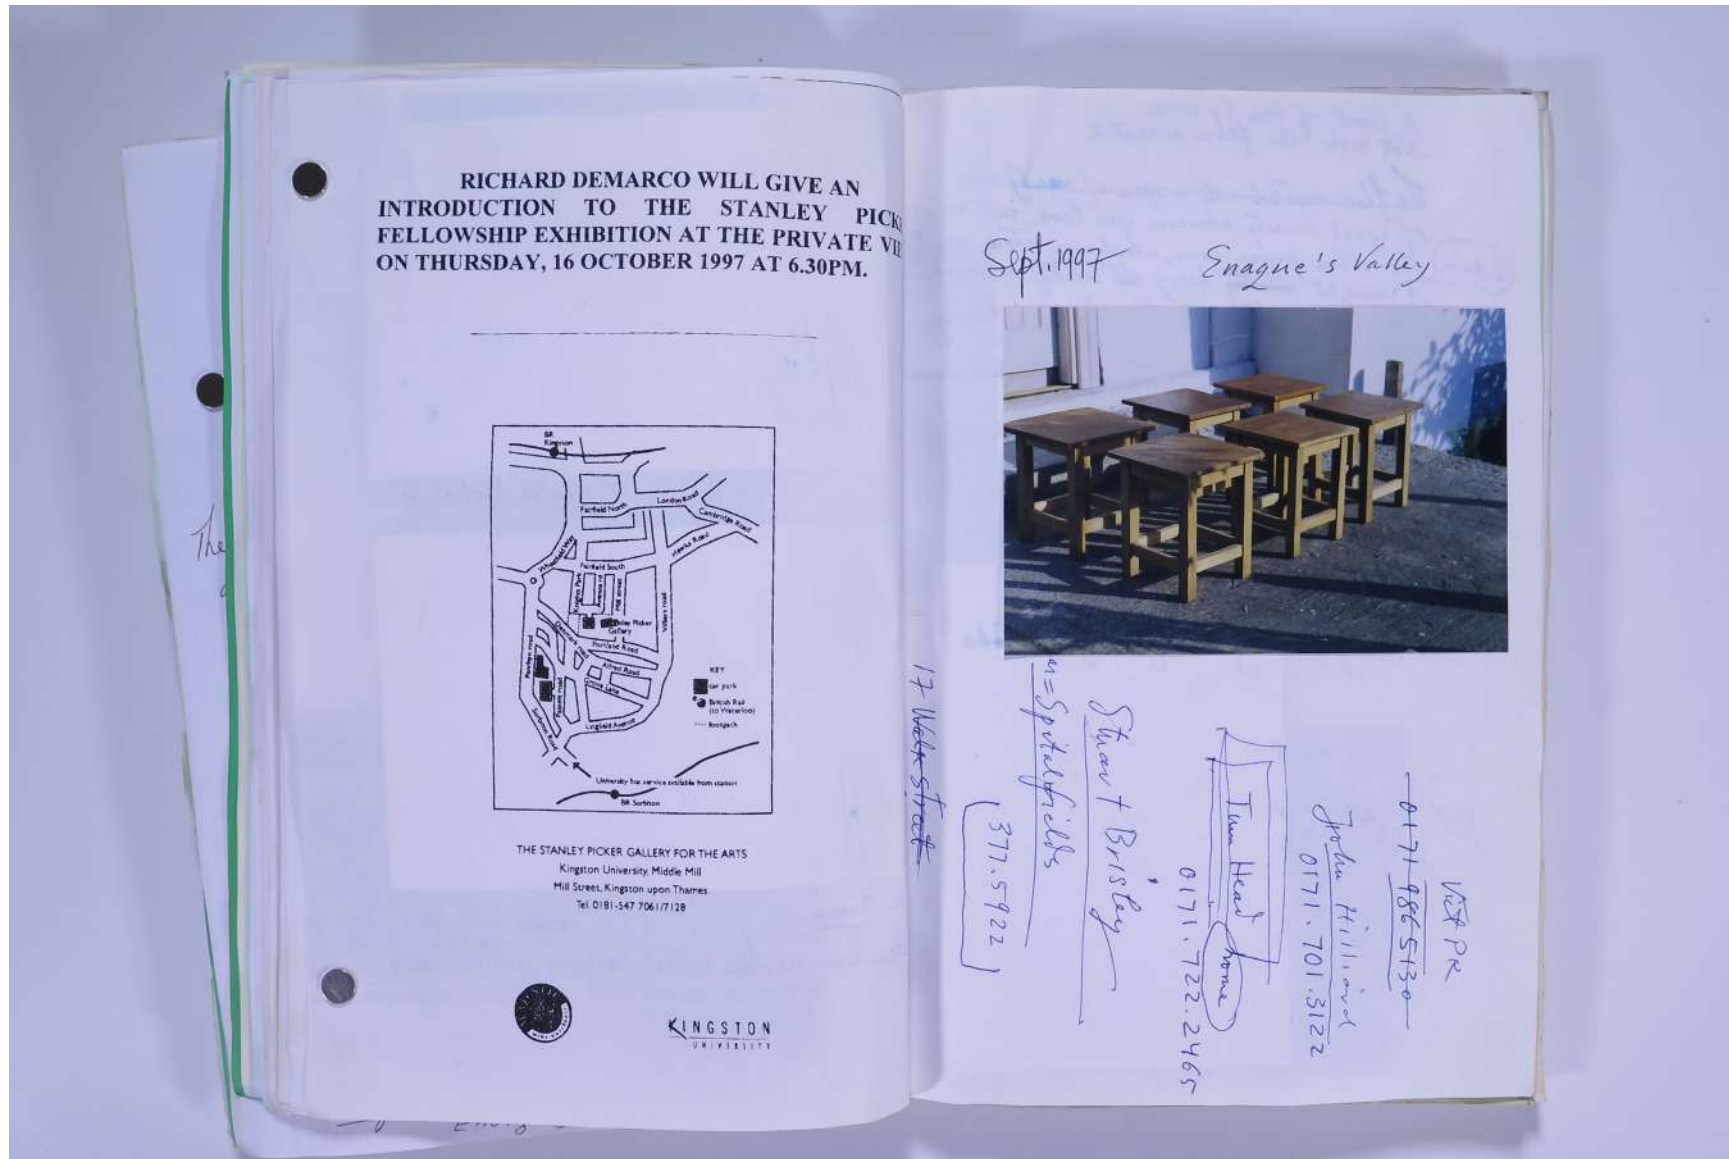 RICHARD DEMARCO WILL GIVE AN
INTRODUCTION TO THE STANLEY PICK
FELLOWSHIP EXHIBITION AT THE PRIVATE VIE
ON THURSDAY, 16 OCTOBER 1997 AT 6.30PM.
BR
Kingston
London Road
Fairfield North
Cambridge Road
Hawks Road
Wheatfield Way
Fairfield South
Knights Park
Mill Street
Villiers road
Picker
Gallery
Denmark road
Portland Road
Alfred Road
Grove Lane
Penrhyn road
Surbiton Road
Lingfield Avenue
KEY
car park
British Rail
(to Waterloo)
footpath
University bus service available from station
BR Surbiton
THE STANLEY PICKER GALLERY FOR THE ARTS
Kingston University, Middle Mill
Mill Street, Kingston upon Thames
Tel 0181-547 7061/7128
KINGSTON
UNIVERSITY
The
Sept. 1997 Enaque's Valley
Vict PR
0171-986 5130
John Hilliard
0171.701.3122
Tim Head home
0171.722.2465
Stuart Brisley
= Spitalfields
377.5922
17 Street